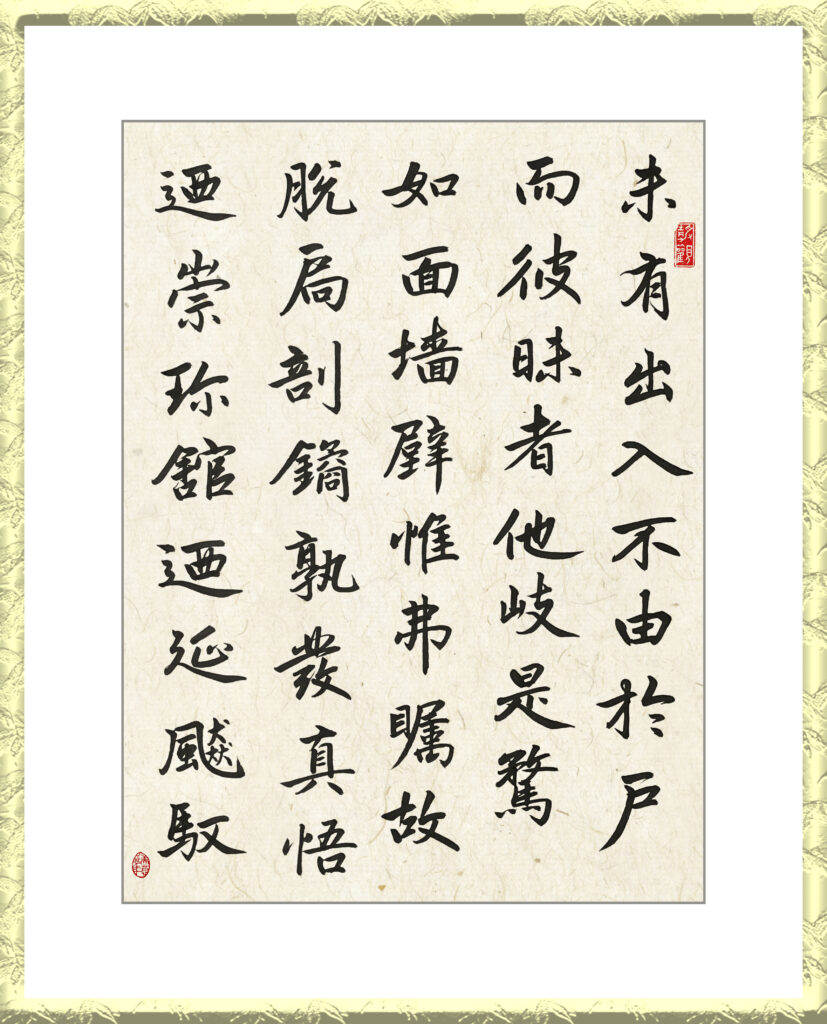 未有出入不由於户
而彼昧者他岐是騖
如面墙壁惟弗瞩故
脱扃剖鐍孰發真悟
迺崇珎舘迺延飇馭